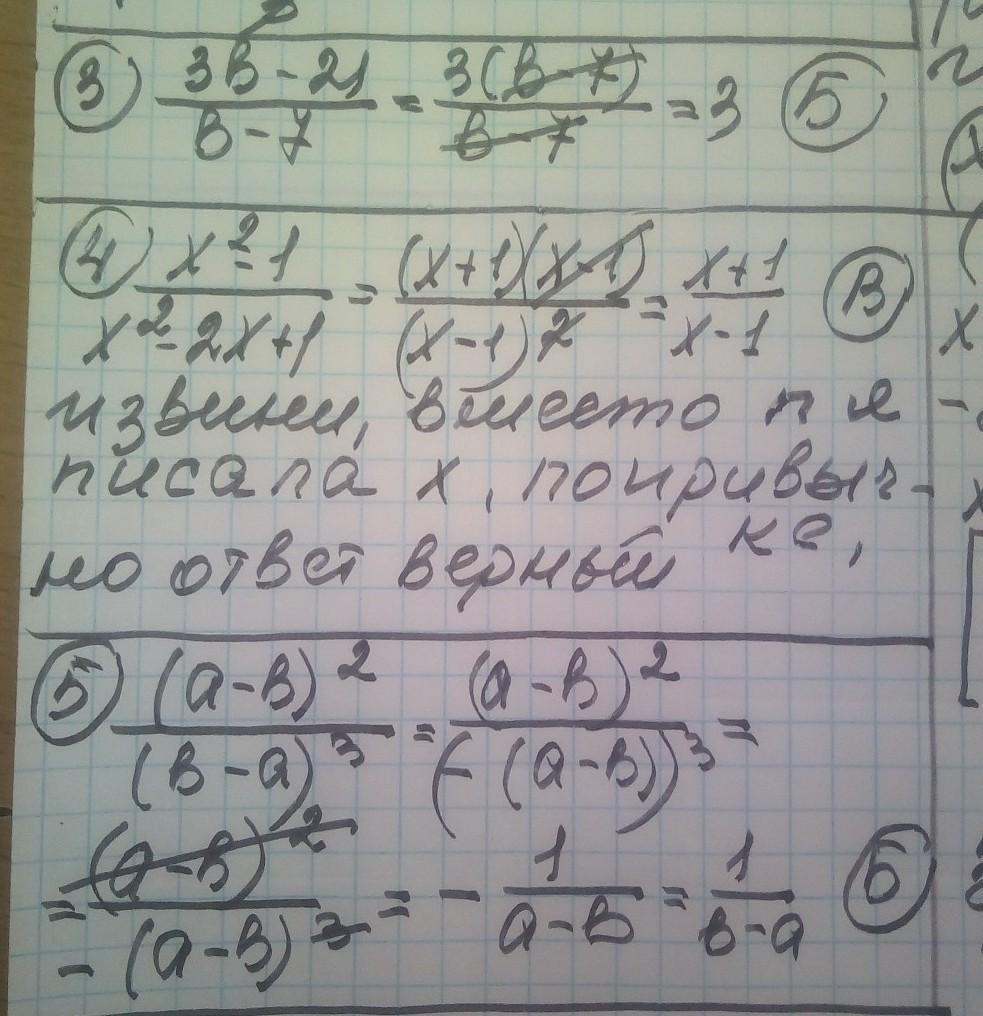 ③ (3в - 21)/(в - 7) = 3(в - 7)/(в - 7) = 3 Ⓑ
④ (x² - 1)/(x² - 2x + 1) = (x + 1)(x - 1)/(x - 1)² = (x + 1)/(x - 1) Ⓑ
извини, вместо n я
писала x, по привыч-
ке,
но ответ верный
⑤ (a - в)²/(в - a)³ = (a - в)²/(-(a - в))³ =
= (a - в)²/-(a - в)³ = - 1/(a - в) = 1/(в - a) Ⓑ